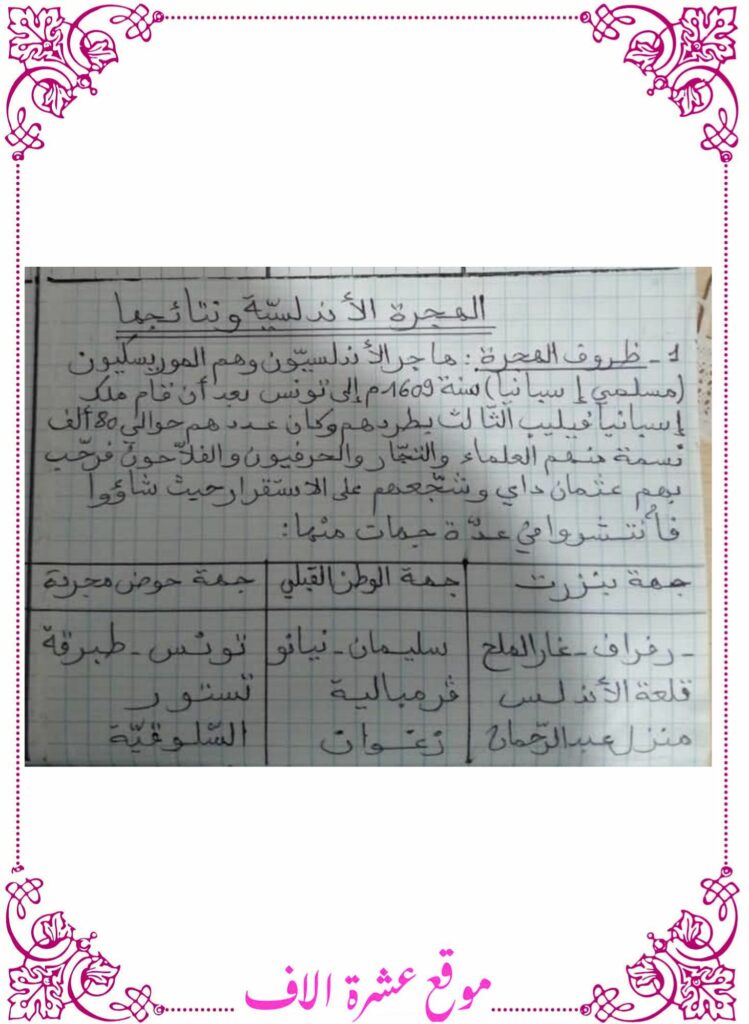 الهجرة الأندلسيّة ونتائجها
1 - ظروف الهجرة : هاجر الأندلسيّون وهم الموريسكيون
(مسلمي إسبانيا) سنة 1609م إلى تونس بعد أن قام ملك
إسبانيا فيليب الثالث بطردهم وكان عددهم حوالي 80 ألف
نسمة منهم العلماء والتجّار والحرفيون والفلاّحون فرحّب
بهم عثمان داي وشجّعهم على الاستقرار حيث شاؤوا
فأنتشروا في عدّة جهات منها :
جهة بنزرت | جهة الوطن القبلي | جهة حوض مجردة
- رفراف - غار الملح | سليمان - نيانو | تونس - طبرقة
قلعة الأندلس | ڤرمبالية | تستور
منزل عبد الرّحمان | زغوان | السّلوقيّة
موقع عشرة الاف